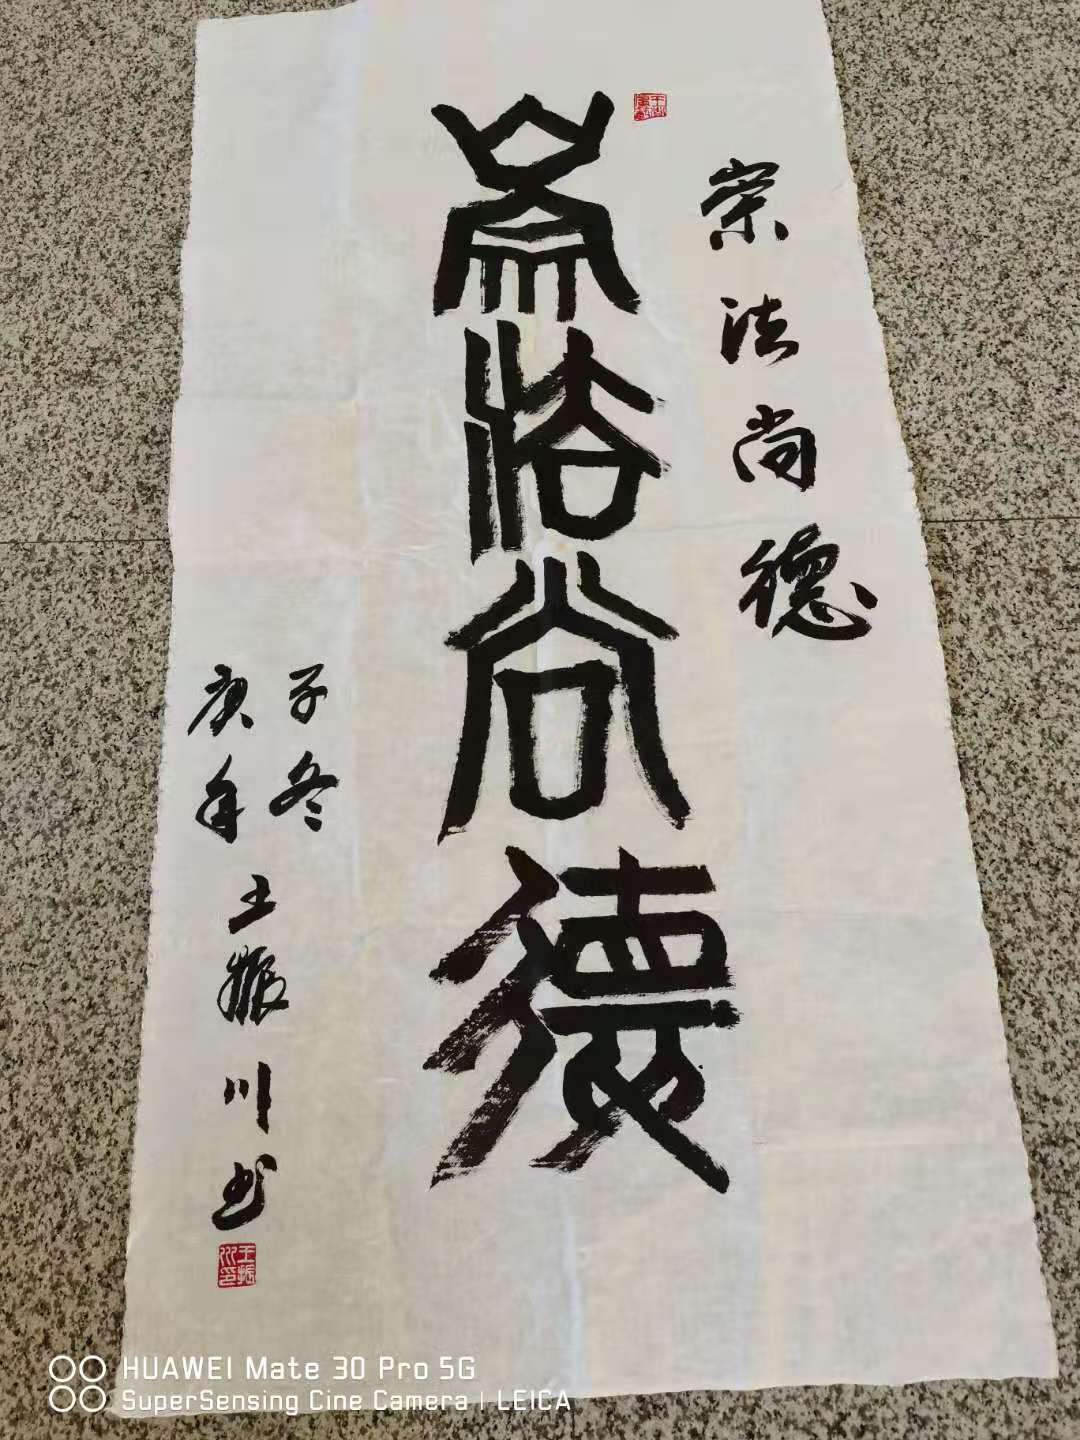 崇法尚德
崇法尚德
子冬
庚年王振川书
王振川印
HUAWEI Mate 30 Pro 5G
SuperSensing Cine Camera | LEICA